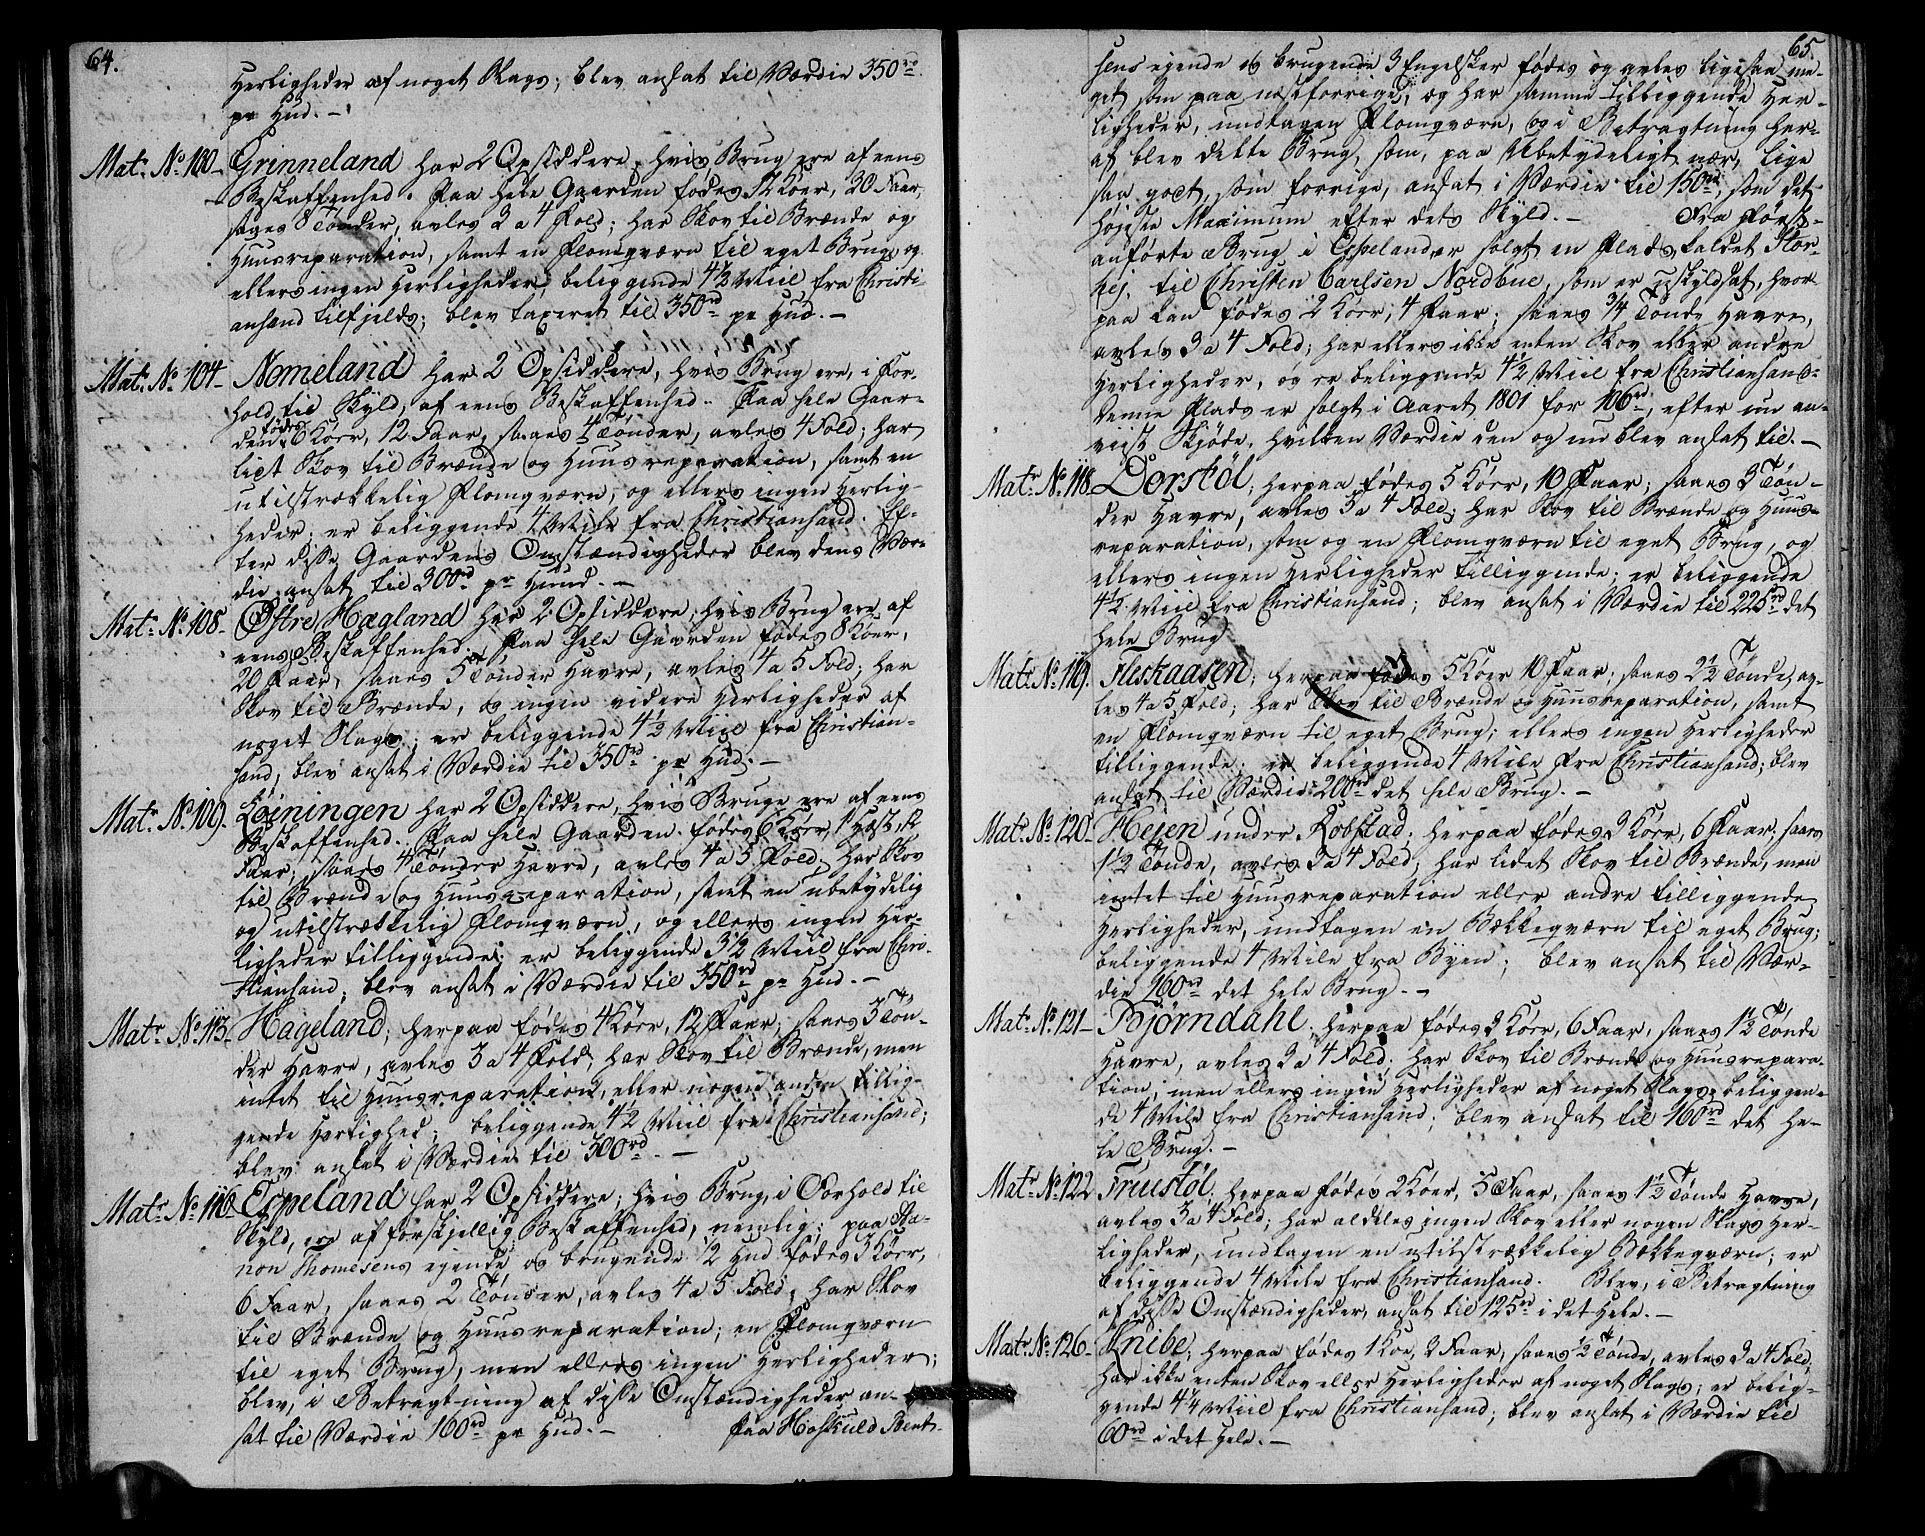 64.
Herligheder af noget Slags; blev ansat til Værdie 350 rd
pr Hud. –
Matr. No 100 – Grinneland har 2 Opsiddere, hvis Brug ere af eens
Beskaffenhed. Paa hele Gaarden födes 12 Köer, 30 Faar,
saaes 8 Tönder, avles 3 a 4 Fold; har Skov til Brænde og
Huusreparation, samt en Flomqværn til eget Brug, og
ellers ingen Herligheder, beliggende 4½ Miil fra Christi-
ansand tilfjelds; blev taxeret til 350 rd pr Hud. –
Matr. No 104 – Nomeland har 2 Opsiddere, hvis Brug ere, i For-
hold til Skyld, af eens Beskaffenhed. Paa hele Gaar-
den födes 6 Köer, 12 Faar, saaes 4 Tönder, avles 4 Fold; har
lidt Skov til Brænde og Huusreparation, samt en
utilstrækkelig Flomqværn, og ellers ingen Herlig-
heder; er beliggende 4 Mile fra Christiansand. Ef-
ter disse Gaardens Omstændigheder blev dens Vær-
die ansat til 300 rd pr Huud. –
Matr. No 108 – Östre Hægland har 2 Opsiddere, hvis Brug ere af
eens Beskaffenhed. Paa hele Gaarden födes 8 Köer,
20 Faar, saaes 5 Tönder Havre, avles 4 a 5 Fold; har
Skov til Brænde, og ingen videre Herligheder af
noget Slags; er beliggende 4½ Miil fra Christian-
sand, blev ansat i Værdie til 350 rd pr Hud. –
Matr. No 109. Löiningen har 2 Opsiddere, hvis Bruge ere af eens
Beskaffenhed. Paa hele Gaarden födes 6 Köer, 1 Hest, 12
Faar, saaes 4 Tönder Havre, avles 4 a 5 Fold; har Skov
til Brænde og Huusreparation, samt en ubetydelig
og utilstrækkelig Flomqværn, og ellers ingen Her-
ligheder tilliggende; er beliggende 3½ Miil fra Chri-
stiansand; blev ansat i Værdie til 350 rd pr Hud. –
Matr. No 113 – Hageland; herpaa födes 4 Köer, 12 Faar, saaes 3 Tön-
der Havre, avles 3 a 4 Fold; har Skov til Brænde, men
intet til Huusreparation, eller nogen anden tillig-
gende Herlighed; beliggende 4½ Miil fra Christiansand;
blev ansat i Værdie til 300 rd. –
Matr. No 116 – Espeland har 2 Opsiddere; hvis Brug, i Forhold til
Skyld, ere af forskjellig Beskaffenhed, nemlig: paa Sa-
non Thomesens egende og brugende ½ Hud födes 3 Köer,
6 Faar, saaes 2 Tönder, avles 4 a 5 Fold, har Skov
til Brænde og Huusreparation; en Flomqværn
til eget Brug, men ellers ingen Herligheder;
blev, i Betragtning af disse Omstændigheder an-
sat til Værdie 160 rd pr Hud. – Paa Hoskuld Bent-
65.
sens egende og brugende 3 Engelsker födes og avles ligesaa me-
get som paa næstforrige, og har samme tilliggende Her-
ligheder, undtagen Flomqværn, og i Betragtning her-
af blev dette Brug, som, paa Ubetydeligt nær, lige
saa godt, som forrige, ansat i Værdie til 150 rd, som det
höieste Maximum efter dets Skyld. – Fra först-
anförte Brug i Espeland er solgt en Plads kaldet Stor-
hej, til Christen Carlsen Nordbue, som er uskyldsat, hvor
paa kan födes 2 Köer, 4 Faar; saaes ¾ Tönde Havre,
avles 3 a 4 Fold; har ellers ikke enten Skov eller andre
Herligheder, og er beliggende 4½ Miil fra Christiansand.
Denne Plads er solgt i Aaret 1801 for 106 rd, efter nu an-
viist Skjöde, hvilken Værdie den og nu blev ansat til. –
Matr. No 118. Dorstöl; herpaa födes 5 Köer, 10 Faar; saaes 3 Tön-
der Havre, avles 3 a 4 Fold; har Skov til Brænde og Huus-
reparation, som og en Flomqværn til eget Brug, og
ellers ingen Herligheder tilliggende; er beliggende
4½ Miil fra Christiansand; blev ansat i Værdie til 225 rd det
hele Brug
Matr. No 119. Fleskaasen; herpaa födes 5 Köer 10 Faar; saaes 2½ Tönde, av-
les 4 a 5 Fold; har Skov til Brænde og Huusreparation, samt
en Flomqværn til eget Brug; ellers ingen Herligheder
tilliggende; er beliggende 4 Mile fra Christiansand; blev
ansat til Værdie 200 rd det hele Brug. –
Matr. No 120 – Hejen under Robstad; herpaa födes 3 Köer, 6 Faar, saaes
1½ Tönde, avles 3 a 4 Fold; har lidet Skov til Brænde, men
intet til Huusreparation eller andre tilliggende
Herligheder, undtagen en Bækkeqværn til eget Brug;
beliggende 4 Mile fra Byen; blev ansat til Vær-
die 160 rd det hele Brug. –
Matr. No 121 – Björndahl; herpaa födes 3 Köer, 6 Faar, saaes 1½ Tönde
Havre, avles 3 a 4 Fold; har Skov til Brænde og Huusrepara-
tion, men ellers ingen Herligheder af noget Slags; beliggen-
de 4 Mile fra Christiansand; blev ansat til 160 rd det he-
le Brug. –
Matr. No 122 Truustöl; herpaa födes 2 Köer, 5 Faar, saaes 1½ Tönde Havre,
avles 3 a 4 Fold; har aldeles ingen Skov eller nogen Slags Her-
ligheder, undtagen en utilstrækkelig Bækkeqværn; er
beliggende 4 Mile fra Christiansand. Blev, i Betragtning
af disse Omstændigheder, ansat til 125 rd i det hele. –
Matr. No 126 – Knibe; herpaa födes 1 Koe, 2 Faar, saaes ½ Tönde, avles 3 a 4 Fold;
har ikke enten Skov eller Herligheder af noget Slags; er belig-
gende 4¼ Miil fra Christiansand; blev ansat i Værdie til
60 rd i det hele. –